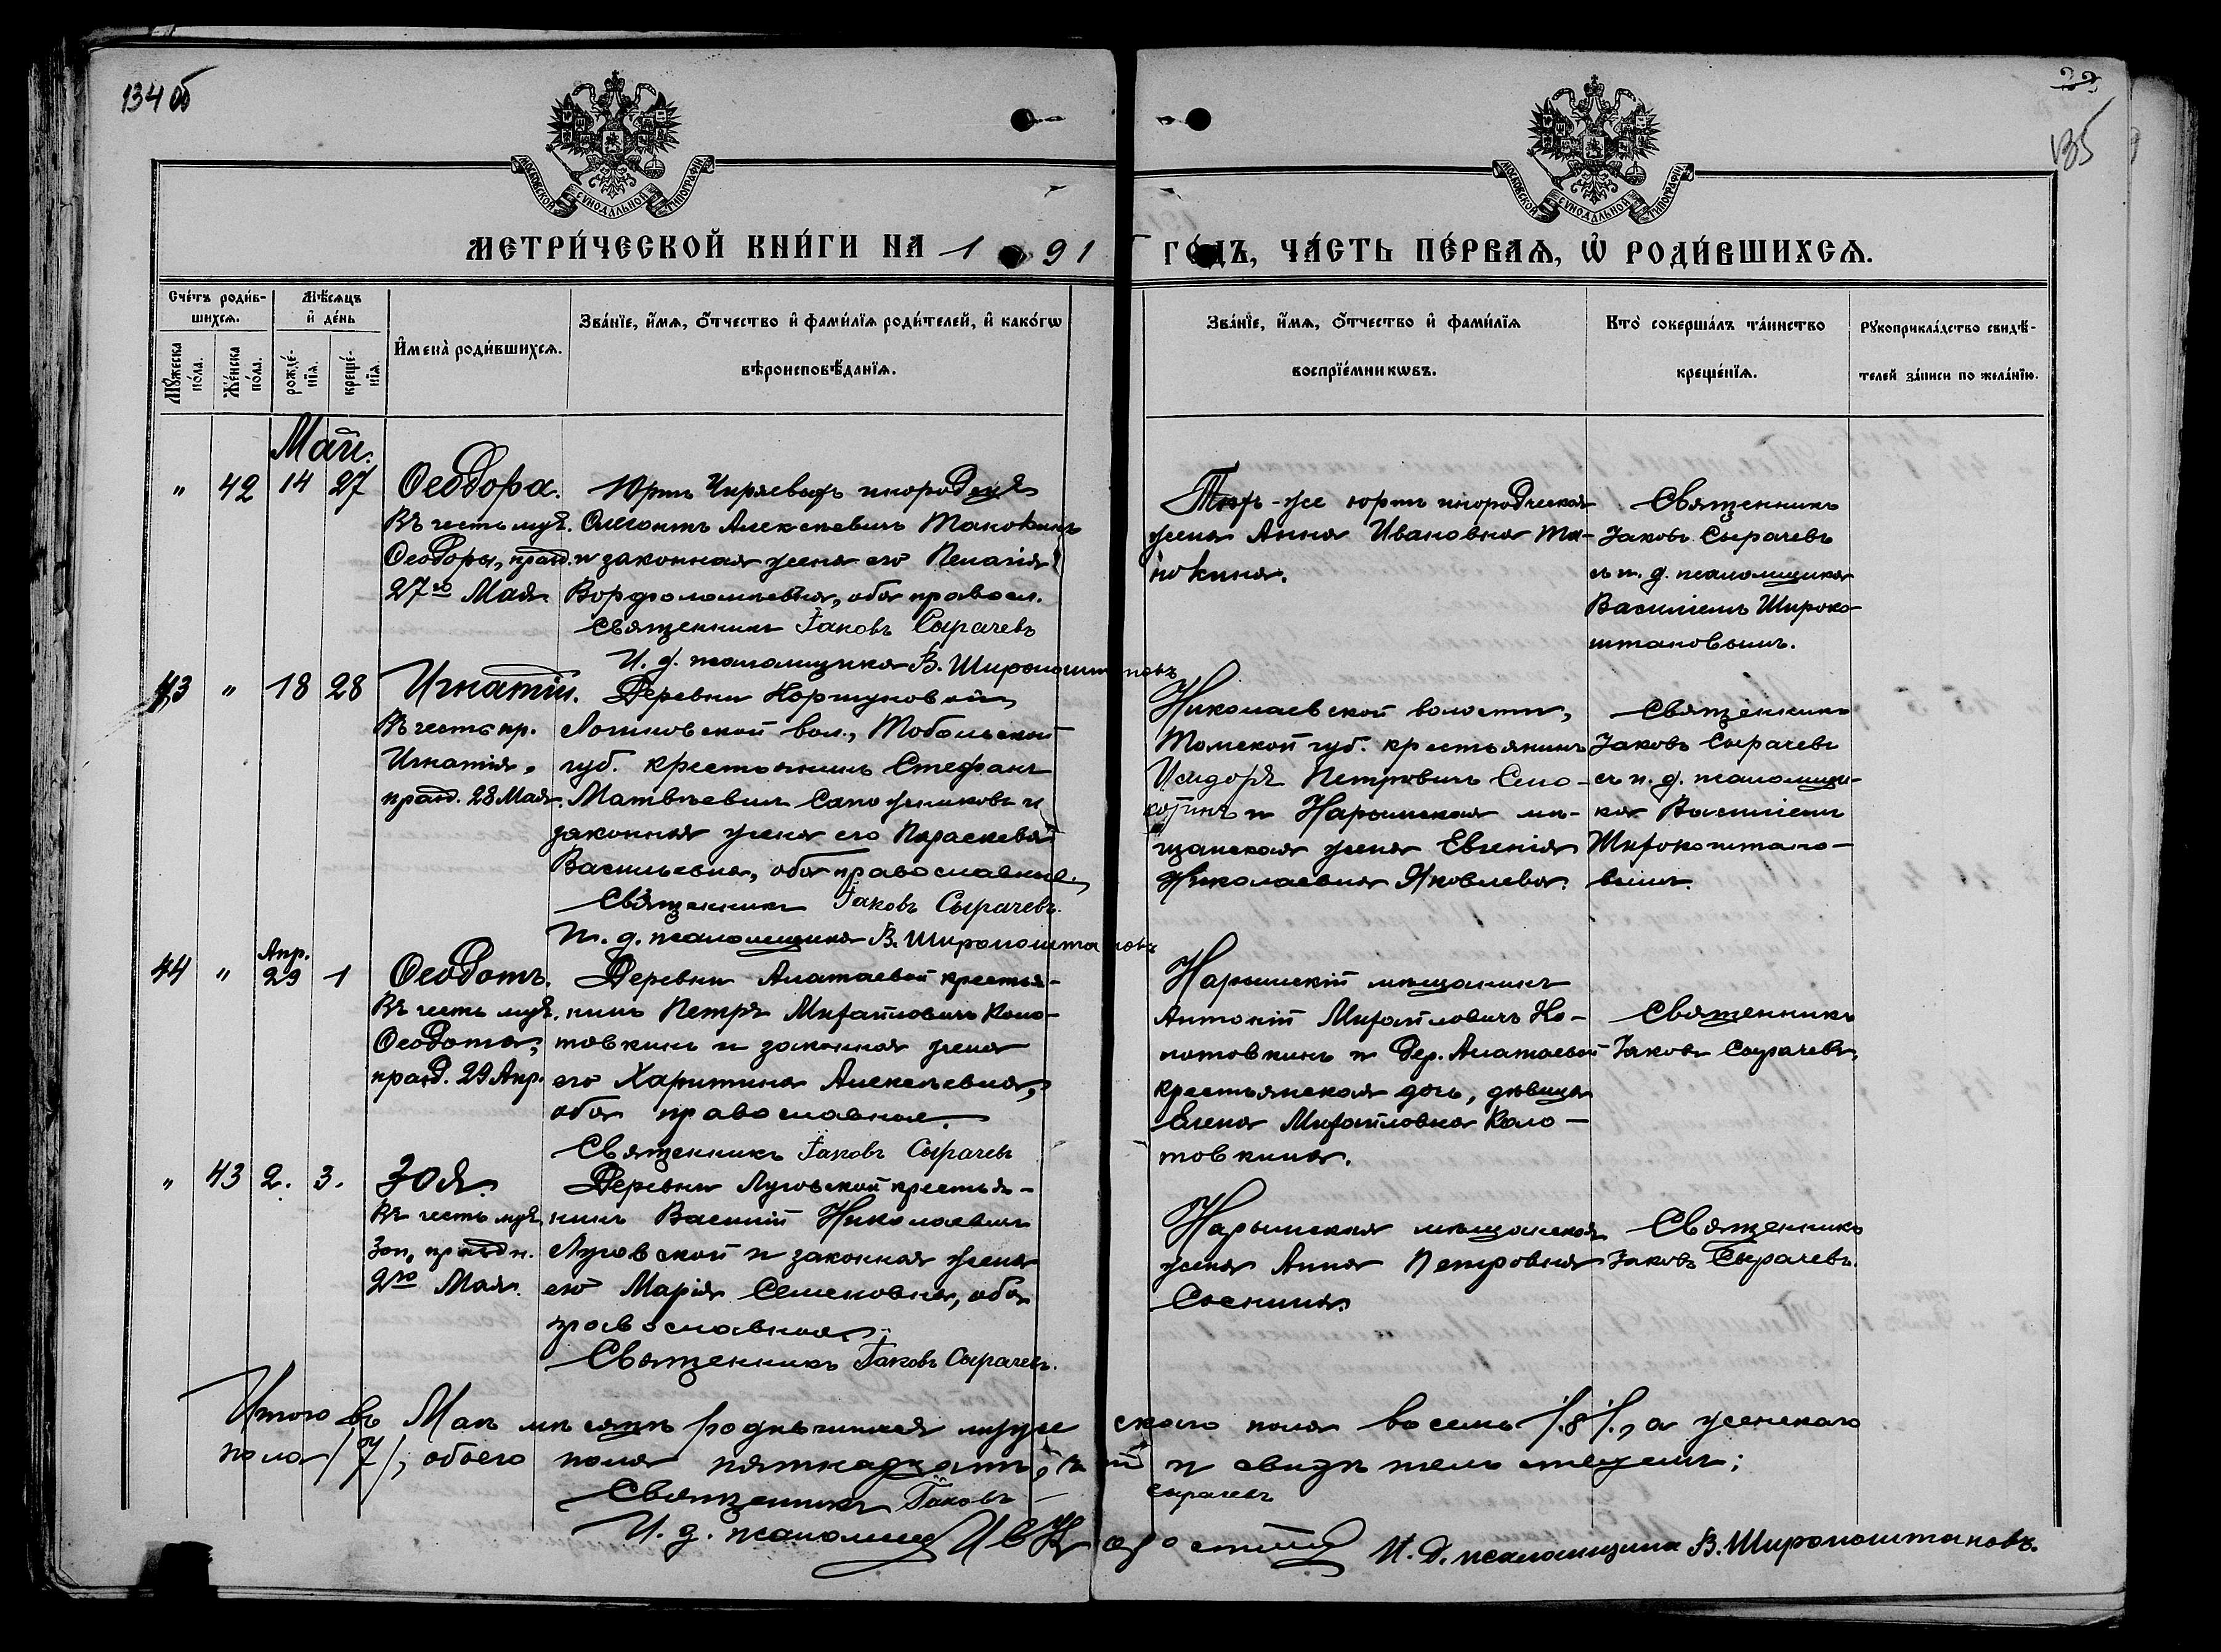 134 об
135
МОСКОВСКОЙ СѴНОДАЛЬНОЙ ТИПОГРАФІИ
МОСКОВСКОЙ СѴНОДАЛЬНОЙ ТИПОГРАФІИ
МЕТРИ́ЧЕСКОЙ КНИ́ГИ НА 1 91
ГО́ДЪ, ЧА́СТЬ ПЕ́РВАѦ, Ѡ҆ РОДИ́ВШИХСѦ.
Сче́тъ роди́в-
шихсѧ.
Мѣ́сѧцъ
и҆ де́нь
Мꙋ́жеска по́ла.
Же́нска по́ла.
рожде́-
нїѧ.
креще́-
нїѧ.
И҆мена̀ роди́вшихсѧ.
Зва́нїе, и҆́мѧ, ѻ҆́тчество и҆ фами́лїѧ роди́телей, и҆ како́гѡ
вѣроисповѣ́данїѧ.
Зва́нїе, и҆́мѧ, ѻ҆́тчество и҆ фами́лїѧ
воспрїе́мникѡвъ.
Кто̀ соверша́лъ та́инство
креще́нїѧ.
Рꙋкоприкла́дство свидѣ́-
телей за́писи по жела́нїю.
Май.
" 42 14 27 Ѳеодора.
Въ честь муч.
Ѳеодоры, празд.
27го Мая
Юртъ
Алексѣевичъ
и законная жена его Пелагія
Варѳоломѣевна, оба правосл.
Священникъ Іаковъ Сырачевъ
И. д. псаломщика В. Широкоштановъ
же юртъ инородческая
жена Анна Ивановна Та-
нокина.
Священникъ
Іаковъ Сырачевъ
съ и. д. псаломщика
Василіемъ Широко-
штановымъ.
43 " 18 28 Игнатій.
Въ честь пр.
Игнатія,
празд. 28 Мая.
Деревни Коршуновой
Логиновской вол., Тобольской
губ. крестьянинъ Стефанъ
Матвѣевичъ Сапожниковъ и
законная жена его Параскева
Васильевна, оба православные.
Священникъ Іаковъ Сырачевъ.
И. д. псаломщика В. Широкоштановъ
Николаевской волости,
Томской губ. крестьянинъ
Исидоръ Петровичъ
и Нарымская мѣ-
щанская жена Евгенія
Николаевна Яковлева.
Священникъ
Іаковъ Сырачевъ
съ и. д. псаломщи-
ка Василіемъ
Широкоштано-
вымъ.
44 " Апр. 29 1 Ѳеодотъ.
Въ честь муч.
Ѳеодота,
празд. 29 Апр.
Деревни Алатаевой крестья-
нинъ Петръ Михайловичъ Коло-
товкинъ и законная жена
его Харитина Алексѣевна,
оба православные.
Священникъ Іаковъ Сырачевъ
Нарымскій мѣщанинъ
Антоній Михайловичъ Ко-
лотовкинъ и дер. Алатаевой
крестьянская дочь, дѣвица
Елена Михайловна Коло-
товкина.
Священникъ
Іаковъ Сырачевъ.
" 43 2. 3. Зоя.
Въ честь муч.
Зои, праздн.
2го Мая.
Деревни Луговской крестья-
нинъ Василій Николаевичъ
Луговской и законная жена
его Марія Семеновна, оба
православные.
Священникъ Іаковъ Сырачевъ.
Нарымская мѣщанская
жена Анна Петровна
Соснина.
Священникъ
Іаковъ Сырачевъ.
Итого въ Маѣ мѣсяцѣ родившихся мужескаго пола восемь /8/, а женскаго
пола /7/, обоего пола пятнадцать,
Священникъ Іаковъ Сырачевъ
И. д. псаломщ
И. д. псаломщика В. Широкоштановъ.